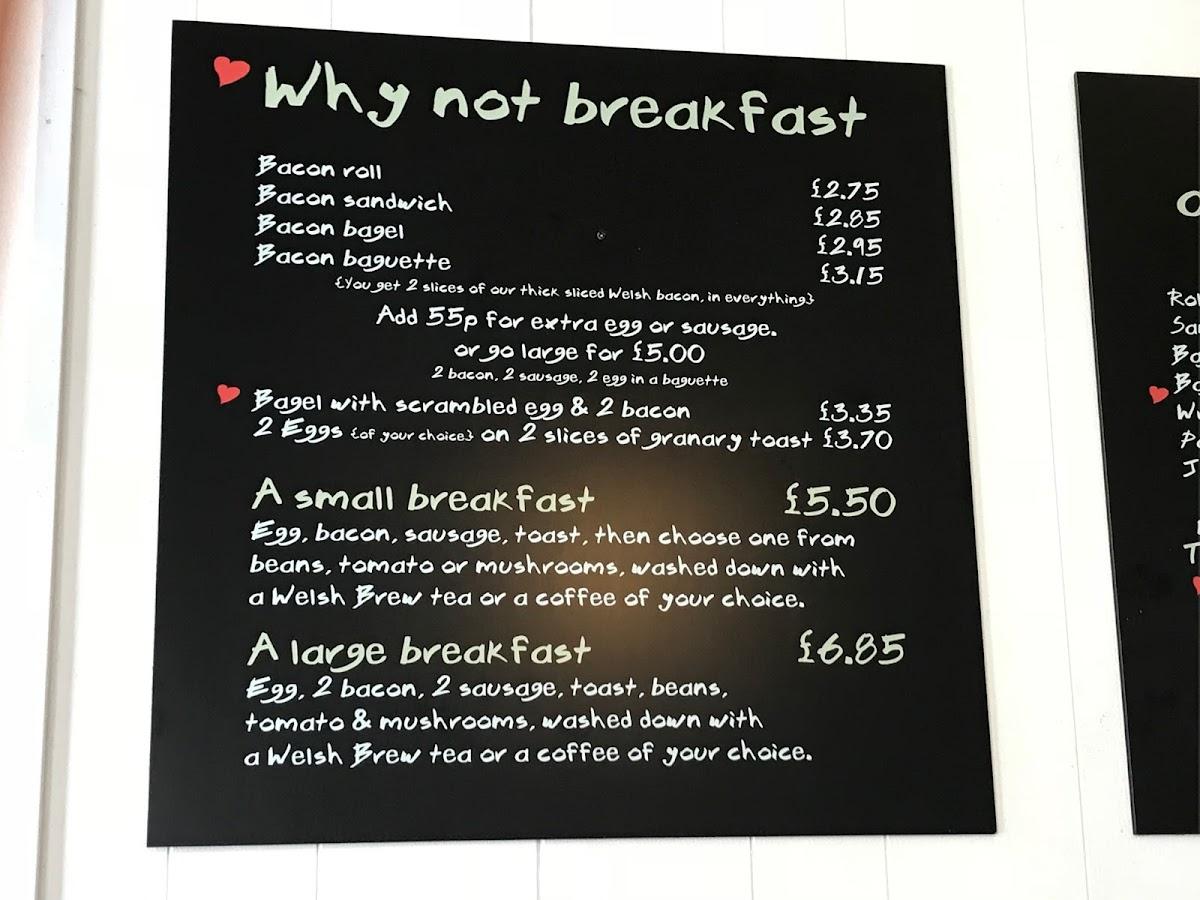 Why not breakfast
Bacon roll £2.75
Bacon sandwich £2.85
Bacon bagel £2.95
Bacon baguette £3.15
{You get 2 slices of our thick sliced Welsh bacon, in everything}
Add 55p for extra egg or sausage.
or go large for £5.00
2 bacon, 2 sausage, 2 egg in a baguette
Bagel with scrambled egg & 2 bacon £3.35
2 Eggs {of your choice} on 2 slices of granary toast £3.70
A small breakfast £5.50
Egg, bacon, sausage, toast, then choose one from
beans, tomato or mushrooms, washed down with
a Welsh Brew tea or a coffee of your choice.
A large breakfast £6.85
Egg, 2 bacon, 2 sausage, toast, beans,
tomato & mushrooms, washed down with
a Welsh Brew tea or a coffee of your choice.